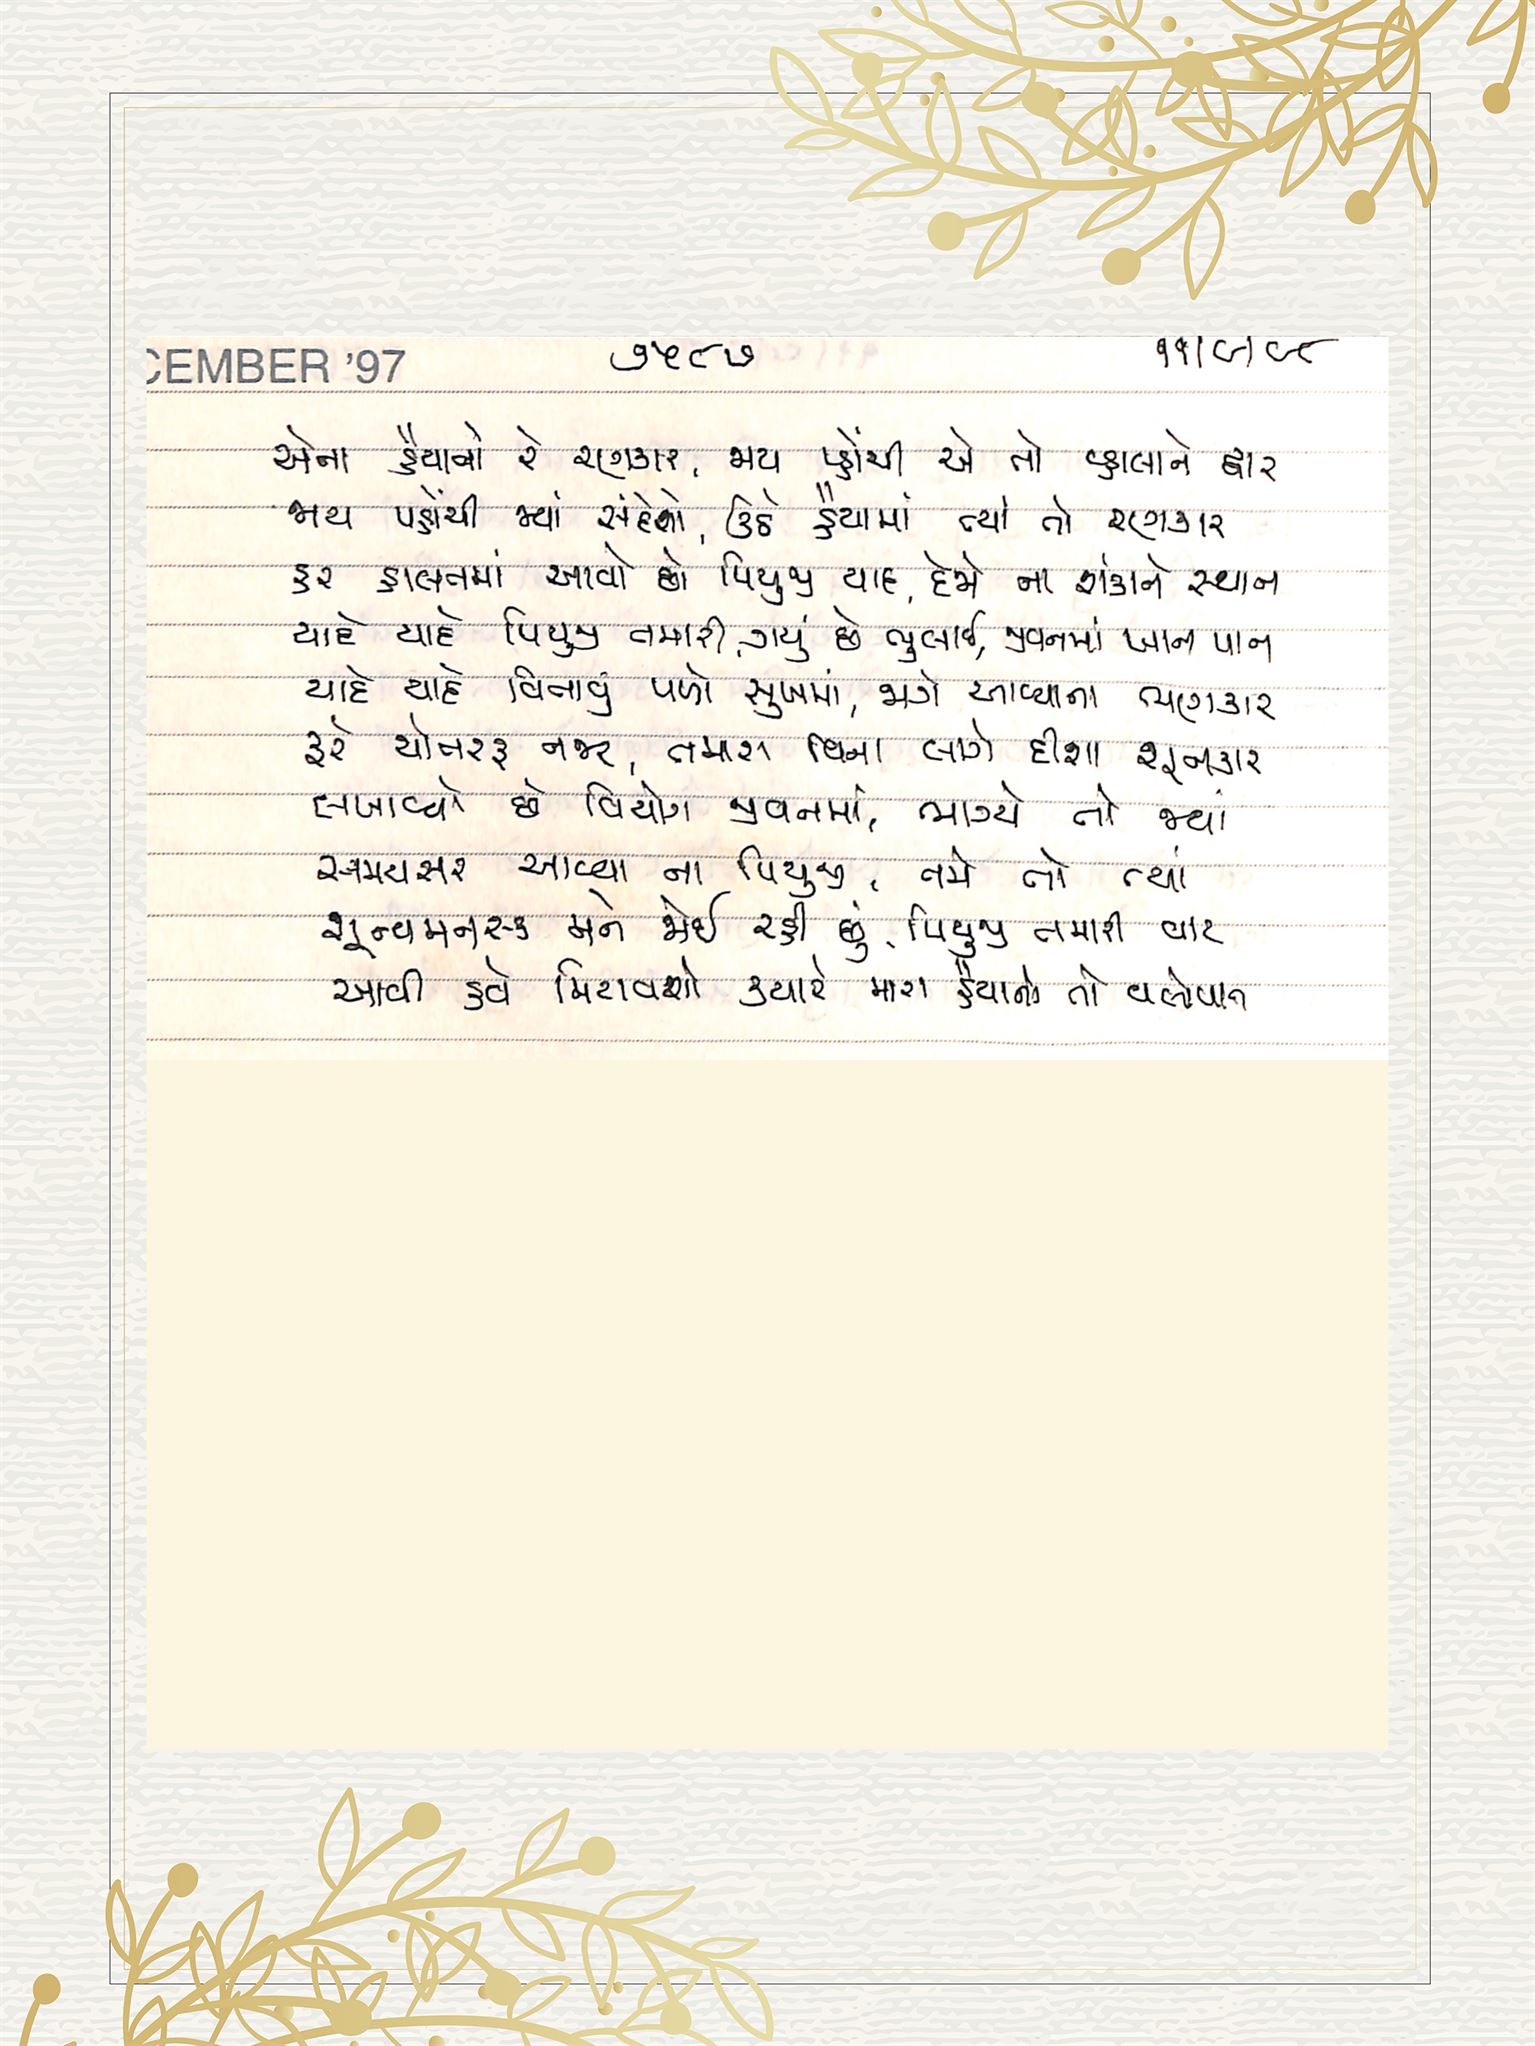 CEMBER '97 ૭૫૯૭ ૧૧/૯/૯૮
એના હૈયાનો રે રણકાર, જાય પ્હોંચી એ તો વ્હાલાને દ્વાર
જાય પહોંચી જ્યાં સંદેશો, ઉઠે હૈયામાં ત્યાં તો રણકાર
હર હાલતમાં આવો છો પિયુજી યાદ, દેજો ના શંકાને સ્થાન
યાદે યાદે પિયુજી તમારી, ગયું છે ભુલાઈ, જીવનમાં ખાન પાન
યાદે યાદે વિતાવું પળો સુખમાં, જાગે આવ્યાના ભણકાર
ફરે ચોતરફ નજર, તમારા વિના લાગે દીશા શૂનકાર
લખાવ્યો છે વિયોગ જીવનમાં, ભાગ્યે તો જ્યાં
સમયસર આવ્યા ના પિયુજી, તમે તો ત્યાં
શૂન્યમનસ્ક બને જોઈ રહી છું, પિયુજી તમારી વાટ
આવી હવે મિટાવશો ક્યારે મારા હૈયાનો તો વલોપાત